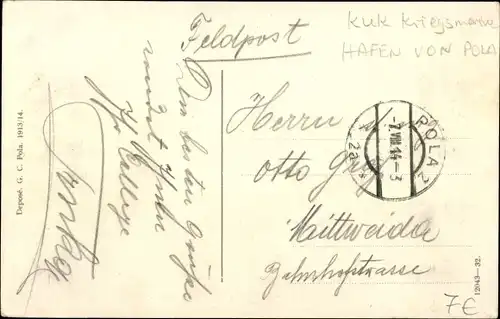 Feldpost
KuK Kriegsmarine
HAFEN VON POLA
Die besten Grüße
sendet Ihnen
Ihr College
Herrn
Otto
Mittweida
Bahnhofstrasse
POLA 2
-7.VIII.14-3
2a
Deposé. G. C. Pola. 1913/14.
12043-32.
7€